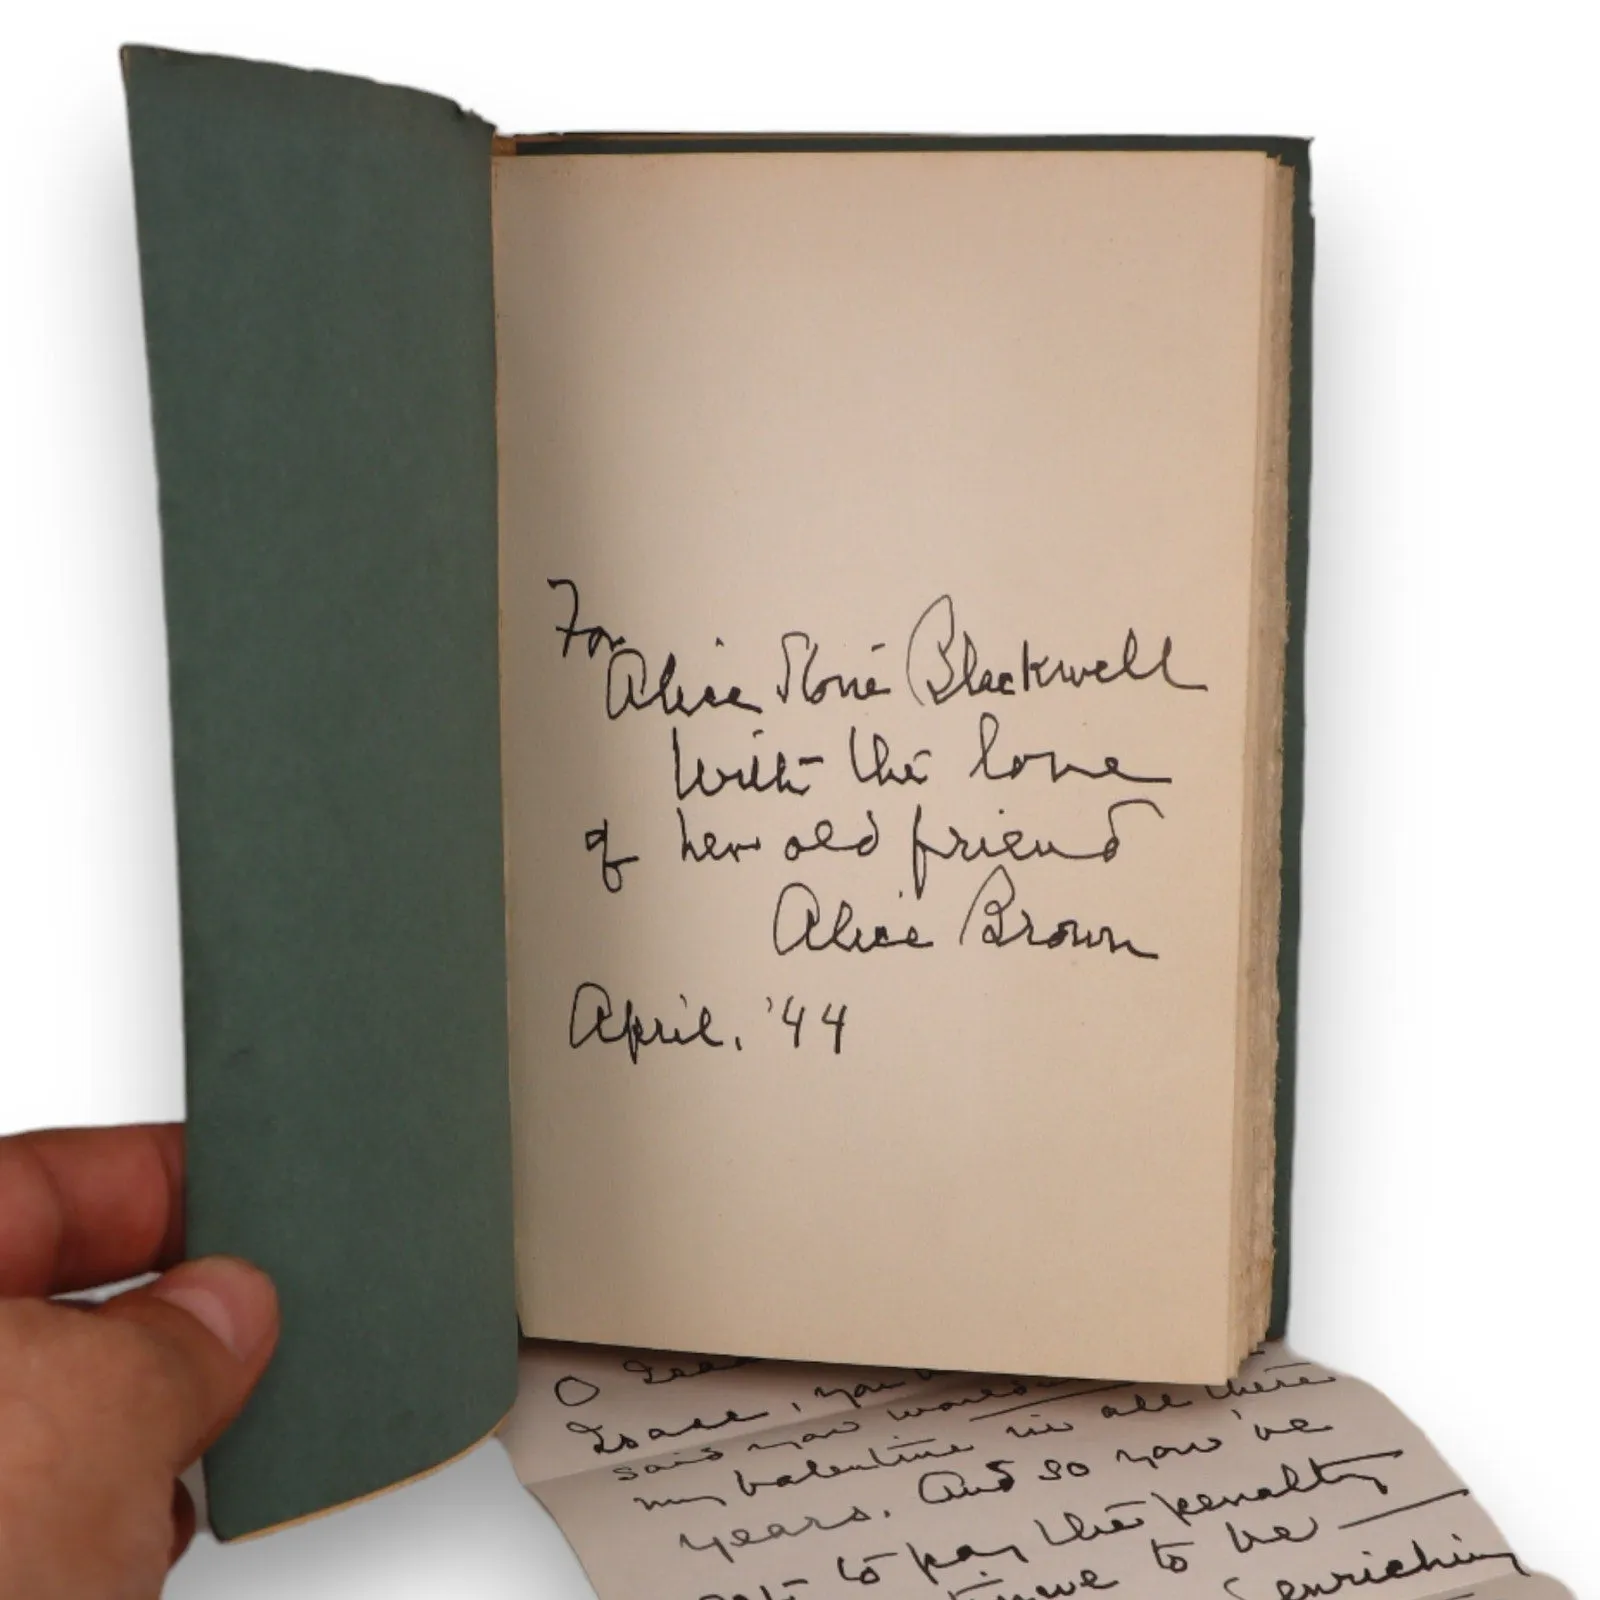 For
Alice Stone Blackwell
With the love
of her old friend
Alice Brown
April, '44
O Isaac
Isaac, you
said you wanted
my valentine in all these
years. And so you've
got to pay the penalty
to be
enriching